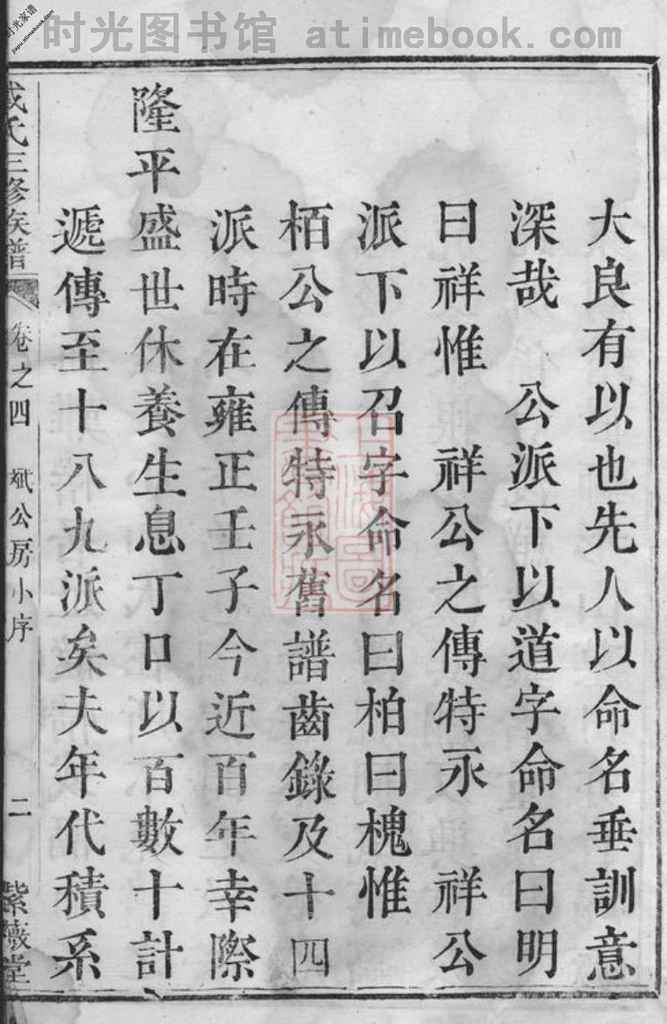 时光图书馆 atimebook.com
大良有以也先人以命名垂訓意
深哉 公派下以道字命名曰明
曰祥惟 祥公之傳特永 祥公
派下以召字命名曰柏曰槐惟
栢公之傳特永舊譜齒錄及十四
派時在雍正壬子今近百年幸際
隆平盛世休養生息丁口以百數十計
遞傳至十八九派矣夫年代積系
成氏三修族譜 卷之四 斌公房小序 二 紫薇堂